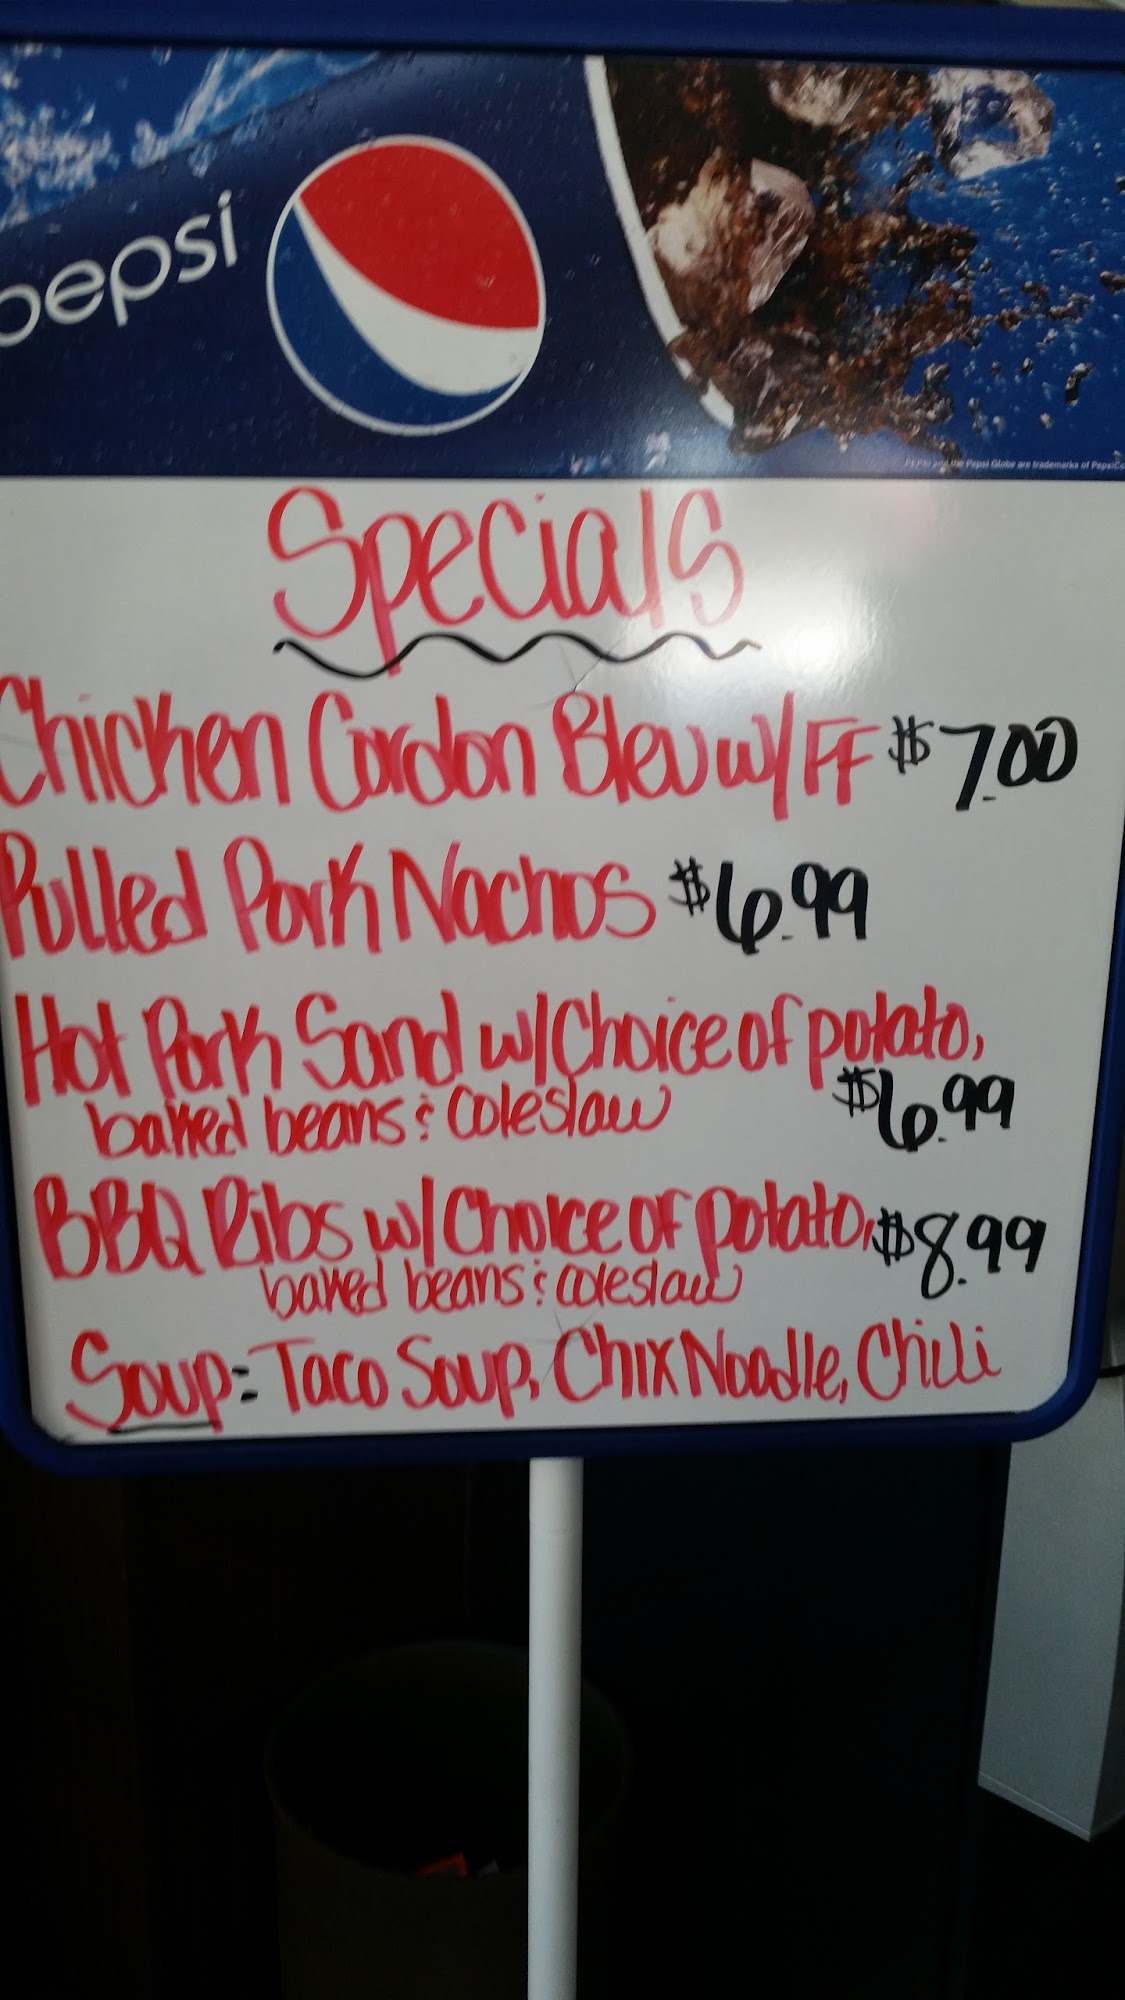 pepsi
PEPSI and the Pepsi Globe are trademarks of PepsiCo
Specials
Chicken Cordon Bleu w/ FF $7.00
Pulled Pork Nachos $6.99
Hot Pork Sand w/ Choice of potato,
baked beans & coleslaw $6.99
BBQ Ribs w/ Choice of potato, $8.99
baked beans & coleslaw
Soup: Taco Soup, Chix Noodle, Chili